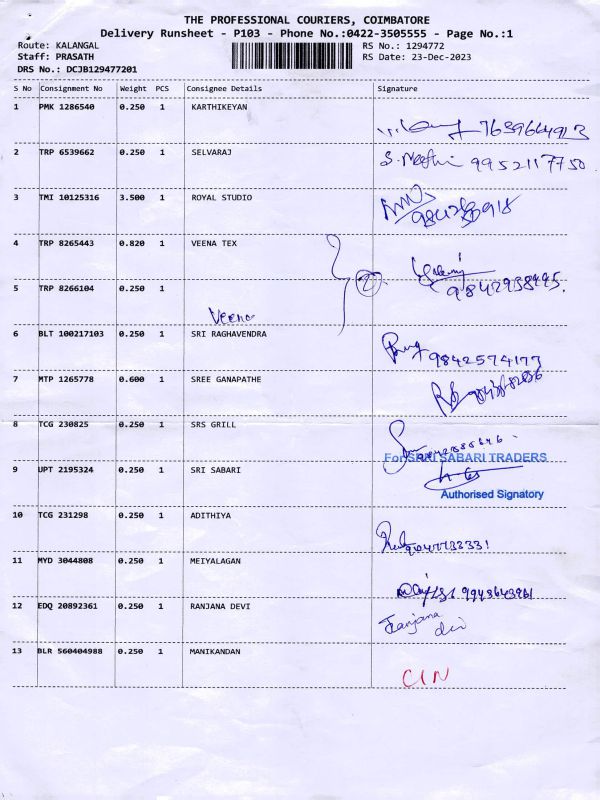 THE PROFESSIONAL COURIERS, COIMBATORE
Delivery Runsheet - P103 - Phone No.:0422-3505555 - Page No.:1
Route: KALANGAL RS No.: 1294772
Staff: PRASATH RS Date: 23-Dec-2023
DRS No.: DCJB129477201
S No Consignment No Weight PCS Consignee Details Signature
1 PMK 1286540 0.250 1 KARTHIKEYAN
7639664913
2 TRP 6539662 0.250 1 SELVARAJ
9952117750
3 TMI 10125316 3.500 1 ROYAL STUDIO
4 TRP 8265443 0.820 1 VEENA TEX
2
5 TRP 8266104 0.250 1 9842938495.
Veena
6 BLT 100217103 0.250 1 SRI RAGHAVENDRA
9842574177
7 MTP 1265778 0.600 1 SREE GANAPATHE
8 TCG 230825 0.250 1 SRS GRILL
For SRRI SABARI TRADERS
9 UPT 2195324 0.250 1 SRI SABARI
Authorised Signatory
10 TCG 231298 0.250 1 ADITHIYA
11 MYD 3044808 0.250 1 MEIYALAGAN
9943643961
12 EDQ 20892361 0.250 1 RANJANA DEVI
Ranjana
devi
13 BLR 560404988 0.250 1 MANIKANDAN
CIN